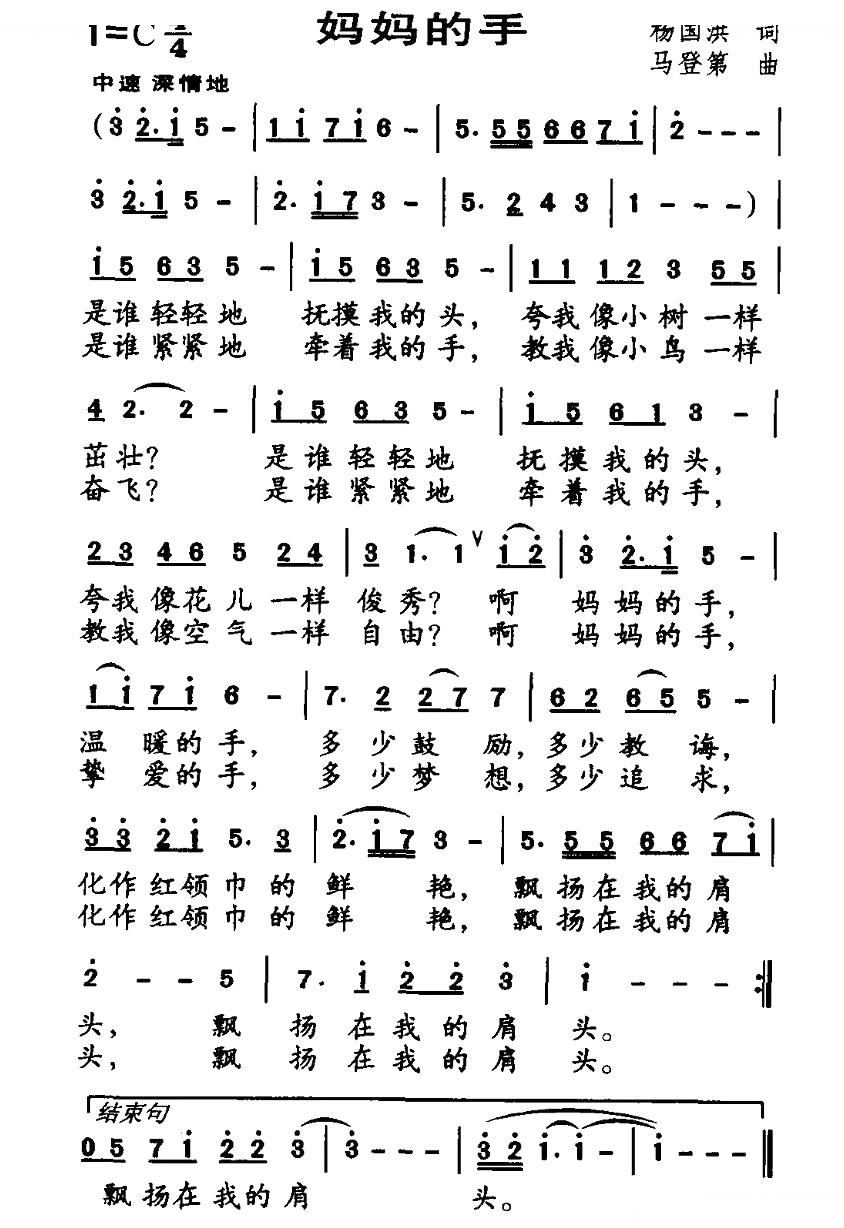 妈妈的手
1=C 4/4
杨国洪 词
马登第 曲
中速 深情地
(3̇ 2̇. 1̇ 5 - | 1 1̇ 7 1̇ 6 - | 5. 5 5 6 6 7 1̇ | 2̇ - - - |
3̇ 2̇. 1̇ 5 - | 2̇. 1̇ 7 3 - | 5. 2 4 3 | 1 - - -) |
1̇ 5 6 3 5 - | 1̇ 5 6 3 5 - | 1 1 1 2 3 5 5 |
是谁轻轻地 抚摸我的头， 夸我像小树一样
是谁紧紧地 牵着我的手， 教我像小鸟一样
4 2. 2 - | 1̇ 5 6 3 5 - | 1̇ 5 6 1 3 - |
茁壮？ 是谁轻轻地 抚摸我的头，
奋飞？ 是谁紧紧地 牵着我的手，
2 3 4 6 5 2 4 | 3 1. 1 ∨ 1̇ 2̇ | 3̇ 2̇. 1̇ 5 - |
夸我像花儿一样 俊秀？ 啊 妈妈的手，
教我像空气一样 自由？ 啊 妈妈的手，
1 1̇ 7 1̇ 6 - | 7. 2 2 7 7 | 6 2 6 5 5 - |
温暖的手， 多少鼓励，多少教诲，
挚爱的手， 多少梦想，多少追求，
3̇ 3̇ 2̇ 1̇ 5. 3 | 2̇. 1̇ 7 3 - | 5. 5 5 6 6 7 1̇ |
化作红领巾的鲜艳， 飘扬在我的肩
化作红领巾的鲜艳， 飘扬在我的肩
2̇ - - 5 | 7. 1̇ 2̇ 2̇ 3̇ | 1̇ - - - :‖
头， 飘扬在我的肩头。
头， 飘扬在我的肩头。
结束句
0 5 7 1̇ 2̇ 2̇ 3̇ | 3̇ - - - | 3̇ 2̇ 1̇. 1̇ - | 1̇ - - - ‖
飘扬在我的肩 头。